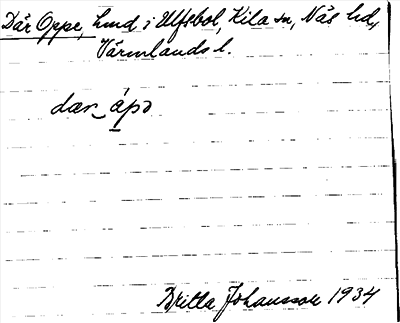 Där Oppe, hmd i Ulfsbol, Kila sn, Näs hd,
Värmlands l.
dær_ ápɔ
Britta Johansson 1934